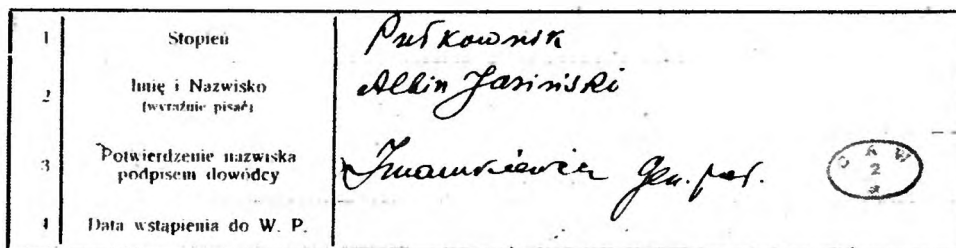 1 Stopień Pułkownik
2 Imię i Nazwisko (wyraźnie pisać) Albin Jasiński
3 Potwierdzenie nazwiska podpisem dowódcy Gen.
CAW 2
4 Data wstąpienia do W. P.